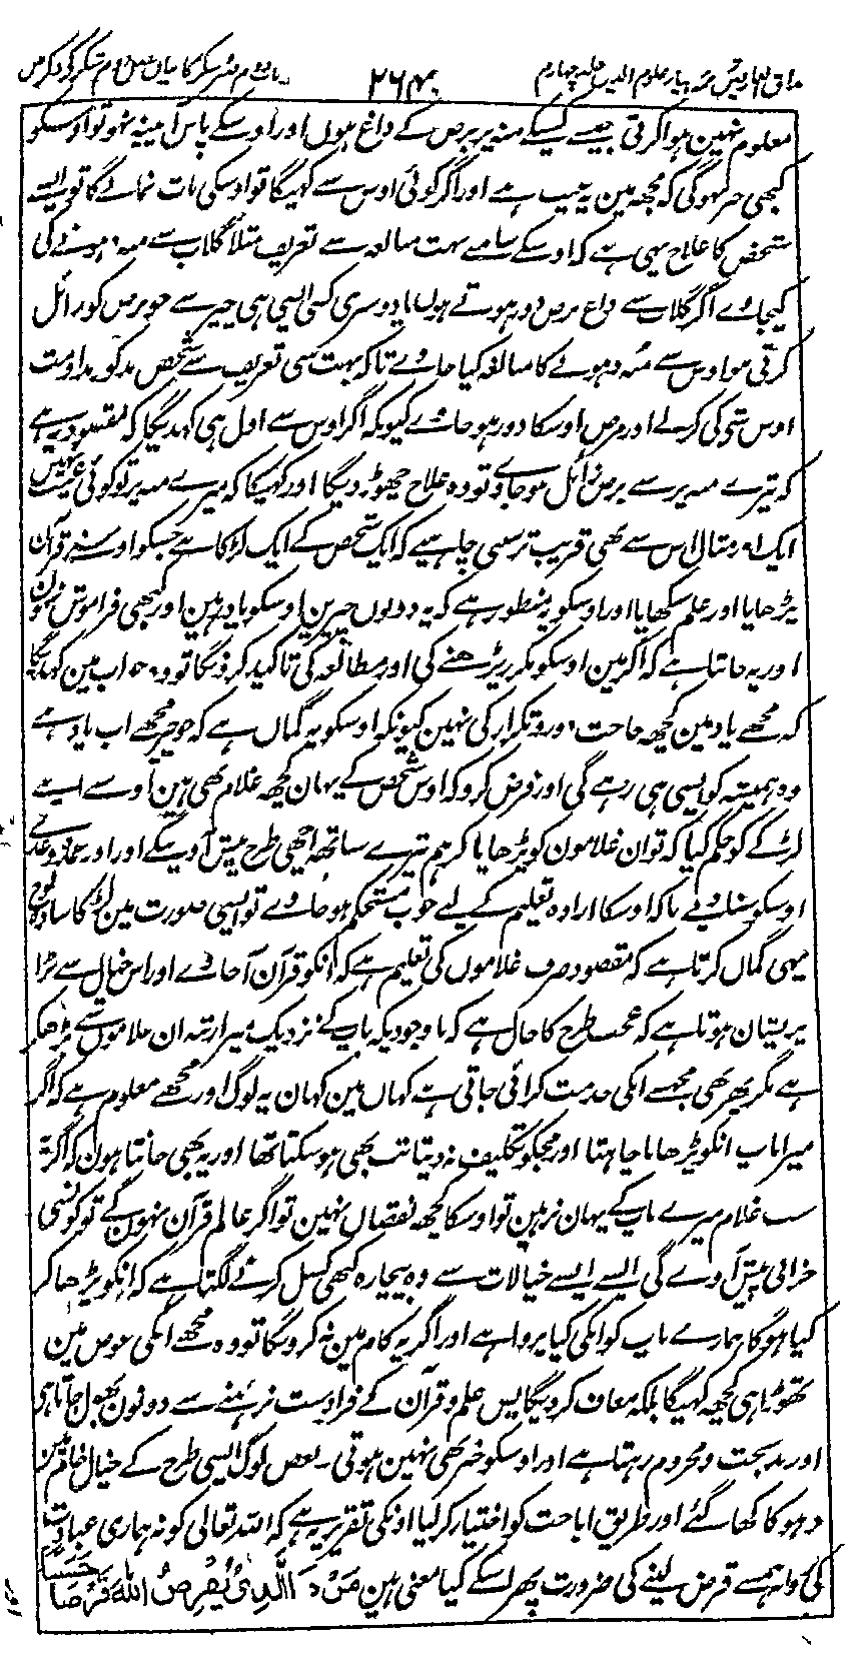 مذاق العارفین ترجمہ احیاء علوم الدین جلد چہارم ۲۶۴ باب دوم صبر شکر کا بیان
معلوم نہین ہوا کرتی جیسے کسیکے منہ پر برص کے داغ ہوں اور اوسکے پاس آئینہ نہو تو اوسکو
کبھی خبر نہوگی کہ مجھ مین یہ عیب ہے اور اگر کوئی اوس سے کہیگا تو اوسکی بات نمانے گا تو ایسے
شخص کا علاج یہی ہے کہ اوسکے سامنے بہت مبالغہ سے تعریف مثلاً گلاب سے منہ دھونے کی
کیجاوے اگر گلاب سے داغ برص دور ہوتے ہوں یا دوسری کسی ایسی ہی چیز سے جو برص کو زائل
کرتی ہو اوس سے منہ دھونے کا مبالغہ کیا جاوے تاکہ بہت سی تعریف سے شخص مذکور مداومت
اوس شی کی کرلے اور مرض اوسکا دور ہو جاوے کیونکہ اگر اوس سے اول ہی کہدیگا کہ مقصود یہ ہے
کہ تیرے منہ پر سے برص زائل ہو جاوے تو وہ علاج چھوڑ دیگا اور کہیگا کہ میرے منہ پر تو کوئی عیب نہیں
ایک اور مثال اس سے بھی قریب تر سنی چاہیے کہ ایک شخص کے ایک لڑکا ہے جسکو اوسنے قرآن
پڑھایا اور علم سکھایا اور اوسکو یہ منظور ہے کہ یہ دونوں چیزین اوسکو یاد رہین اور کبھی فراموش نہون
اور یہ جانتا ہے کہ اگر مین اوسکو مکرر پڑھنے کی اور مطالعہ کی تاکید کرونگا تو وہ جواب مین کہدیگا
کہ مجھے یاد مین کچھ حاجت ورد تکرار کی نہین کیونکہ اوسکو یہ گمان ہے کہ جو چیز مجھے اب یاد ہے
وہ ہمیشہ کو ایسی ہی رہے گی اور فرض کرو کہ اوس شخص کے یہان کچھ غلام بھی ہین اوسنے اپنے
لڑکے کو حکم کیا کہ تو ان غلامون کو پڑھایا کر ہم تیرے ساتھ اچھی طرح پیش آوینگے اور اور عمدہ وعدے
اوسکو سنادیے تاکہ اوسکا ارادہ تعلیم کے لیے خوب مستحکم ہو جاوے تو ایسی صورت مین لڑکا سادہ لوح
یہی گمان کرتا ہے کہ مقصود صرف غلاموں کی تعلیم ہے کہ انکو قرآن آجاوے اور اس خیال سے بڑا
پریشان ہوتا ہے کہ عجب طرح کا حال ہے کہ باوجودیکہ باپ کے نزدیک میرا رتبہ ان غلاموں سے بڑھکر
ہے مگر پھر بھی مجھسے انکی خدمت کرائی جاتی ہے کہاں مین کہان یہ لوگ اور مجھے معلوم ہے کہ اگر
میرا باپ انکو پڑھانا چاہتا اور مجکو تکلیف نہ دیتا تب بھی ہو سکتا تھا اور یہ بھی جانتا ہون کہ اگر یہ
سب غلام میرے باپ کے یہان نرہین تو اوسکا کچھ نقصان نہین تو اگر عالم قرآن نہون گے تو کونسی
خرابی پیش آوے گی ایسے ایسے خیالات سے وہ بیچارہ کبھی کسل کرنے لگتا ہے کہ انکو پڑھا کر
کیا ہوگا ہمارے باپ کو انکی کیا پروا ہے اور اگر یہ کام مین نہ کرونگا تو وہ مجھے انکی عوض مین
تھوڑا ہی کچھ کہیگا بلکہ معاف کردیگا پس علم و قرآن کے مزاولت نرہنے سے دونون بھول جاتا ہی
اور بدبخت و محروم رہتا ہے اور اوسکو خبر بھی نہین ہوتی۔ بعض لوگ ایسی طرح کے خیال خام مین
دھوکا کھا گئے اور طریق اباحت کو اختیار کر لیا اونکی تقریر یہ ہے کہ اللہ تعالی کو نہ ہماری عبادت
کی پروا نہ ہمسے قرض لینے کی ضرورت پھر اسکے کیا معنی ہین مَنْ ذَا الَّذِیْ یُقْرِضُ اللّٰہَ قَرْضًا حَسَنًا